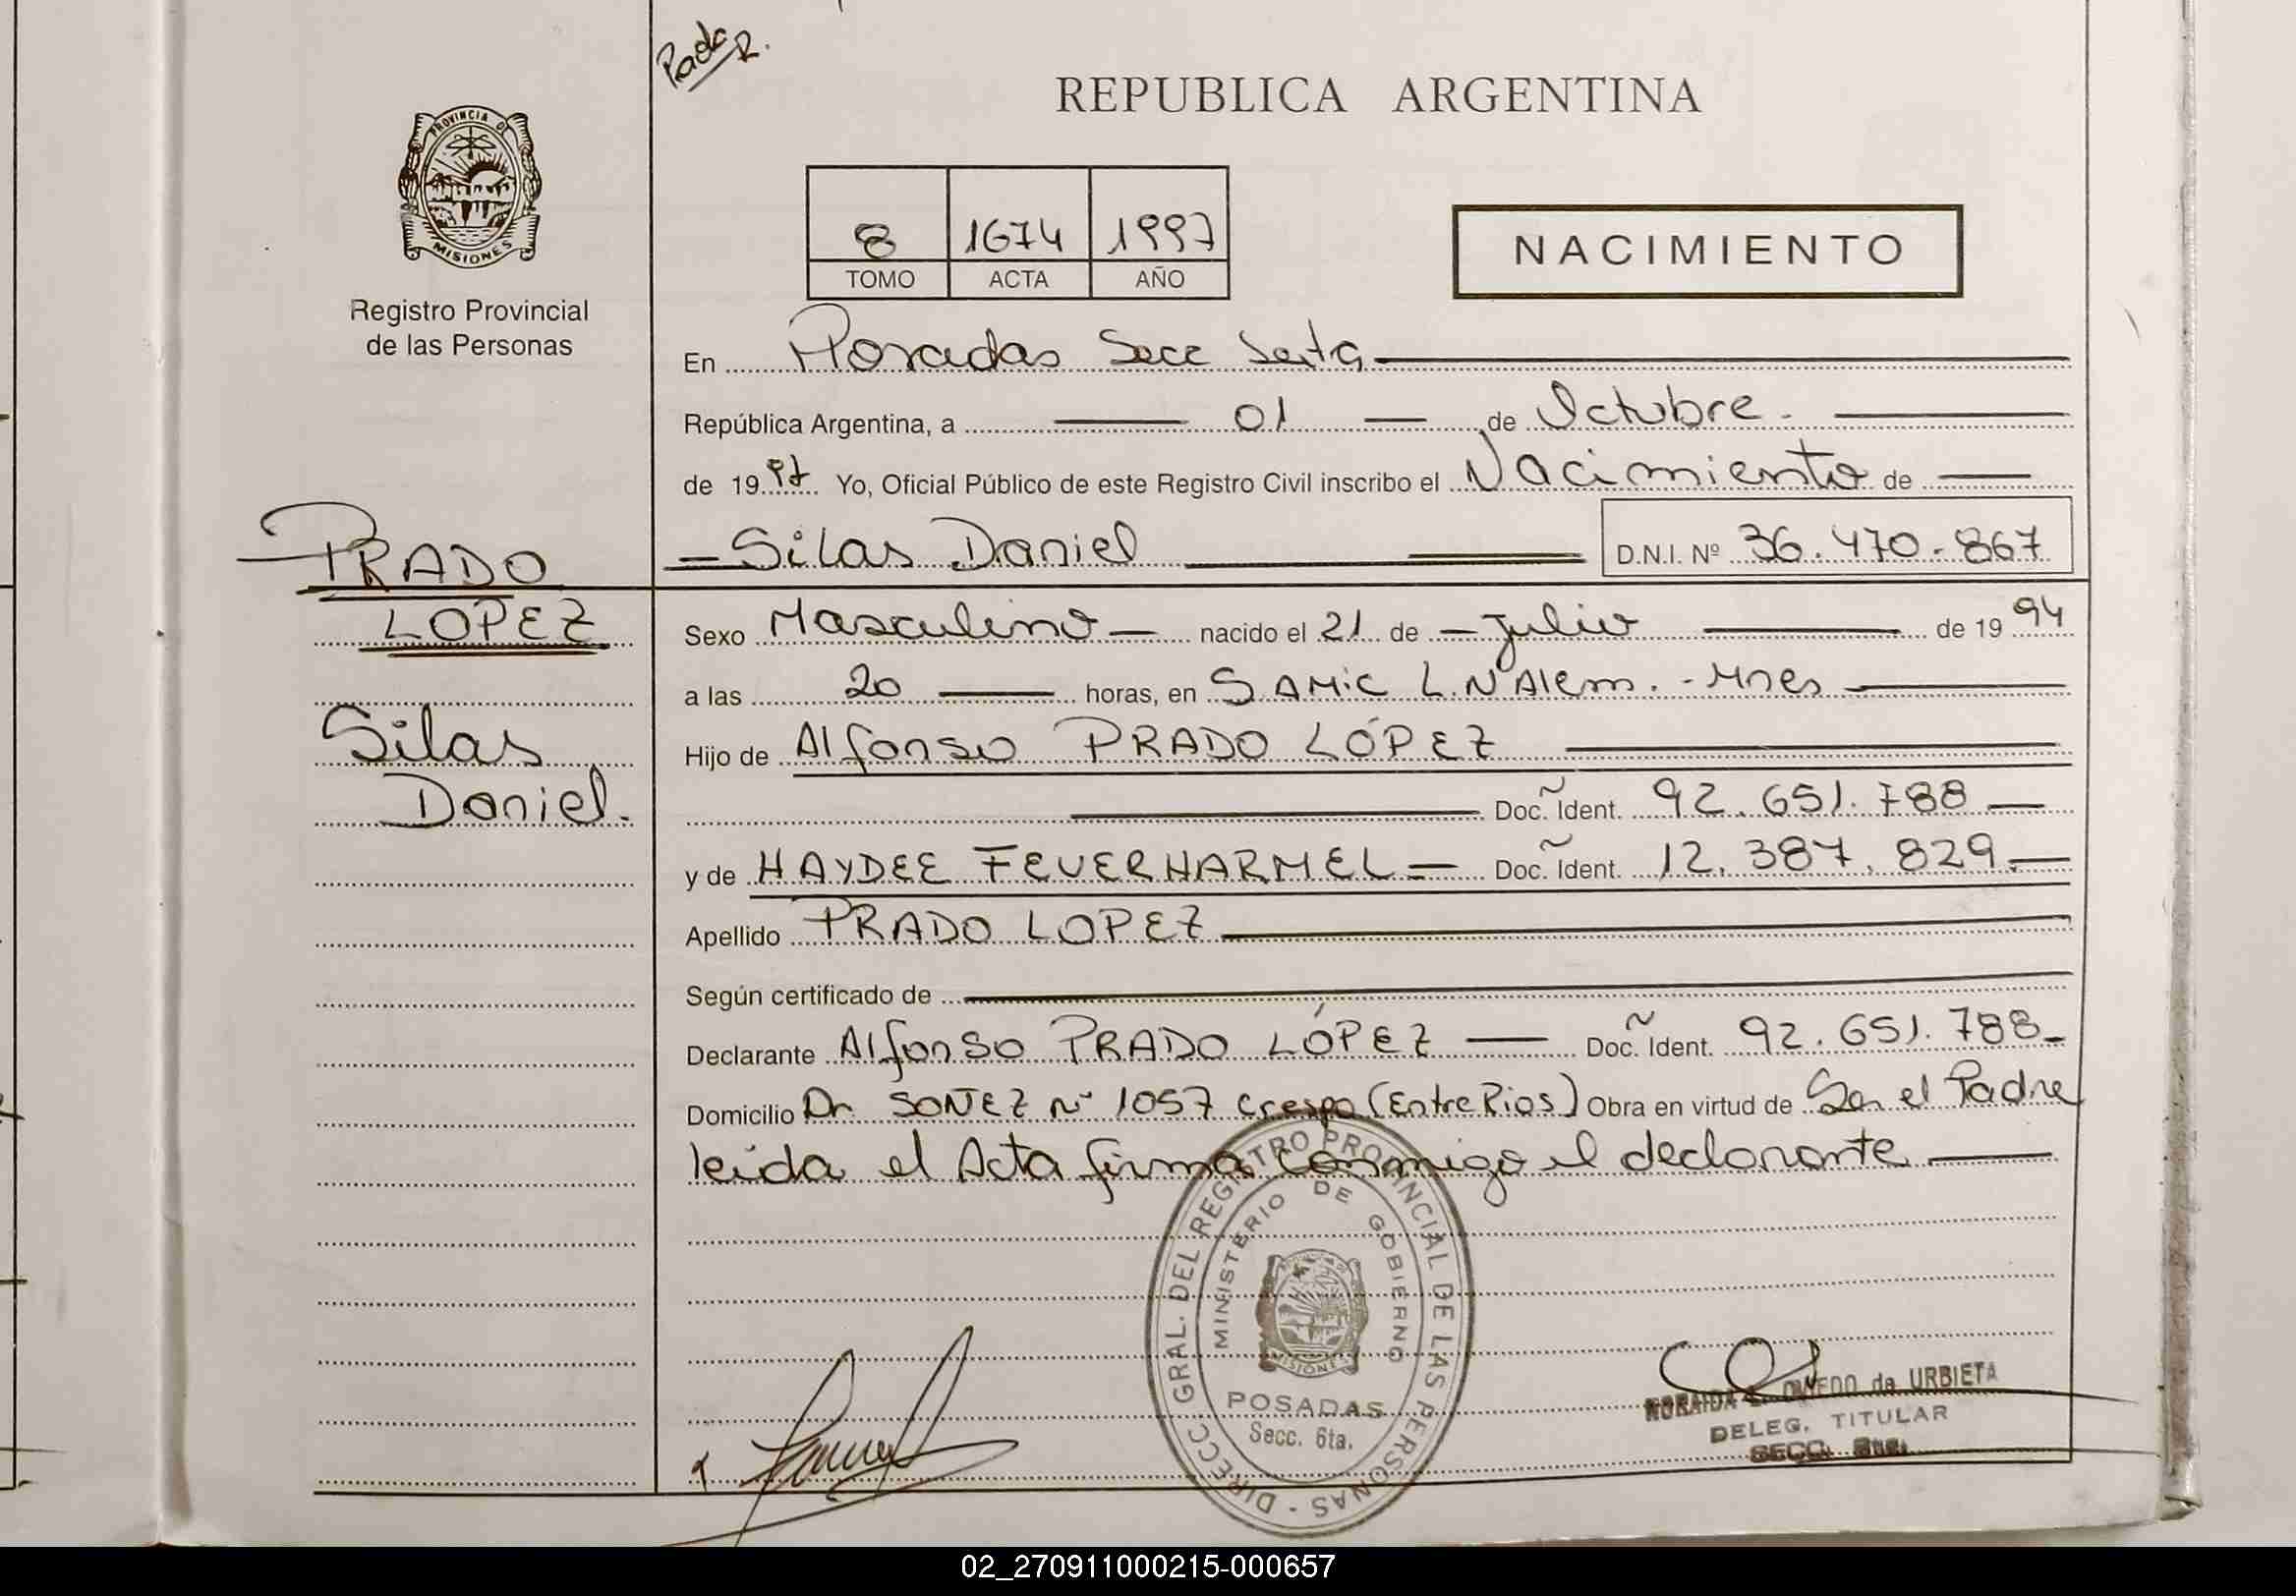 Padr R.
PROVINCIA DE
MISIONES
Registro Provincial
de las Personas
REPUBLICA ARGENTINA
8 1674 1997
TOMO ACTA AÑO
NACIMIENTO
En Posadas Secc Sexta
República Argentina, a 01 de Octubre.
de 1997 Yo, Oficial Público de este Registro Civil inscribo el Nacimiento de
Silas Daniel D.N.I. Nº 36.470.867
PRADO
LOPEZ
Silas
Daniel.
Sexo Masculino nacido el 21 de Julio de 1994
a las 20 horas, en SAMIC L.N Alem. - Mnes
Hijo de Alfonso PRADO LÓPEZ
Doc. Ident. 92.651.788
y de HAYDEE FEUERHARMEL Doc. Ident. 12.387.829
Apellido PRADO LOPEZ
Según certificado de
Declarante Alfonso PRADO LÓPEZ Doc. Ident. 92.651.788
Domicilio Dr. Nº 1057 Crespo (Entre Rios) Obra en virtud de Ser el Padre
leida el Acta firma conmigo el declarante
DIRECC. GRAL. DEL REGISTRO PROVINCIAL DE LAS PERSONAS
MINISTERIO DE GOBIERNO
MISIONES
POSADAS
Secc. 6ta.
OVIEDO de URBIETA
DELEG. TITULAR
SECC. 6ta.
02_270911000215-000657